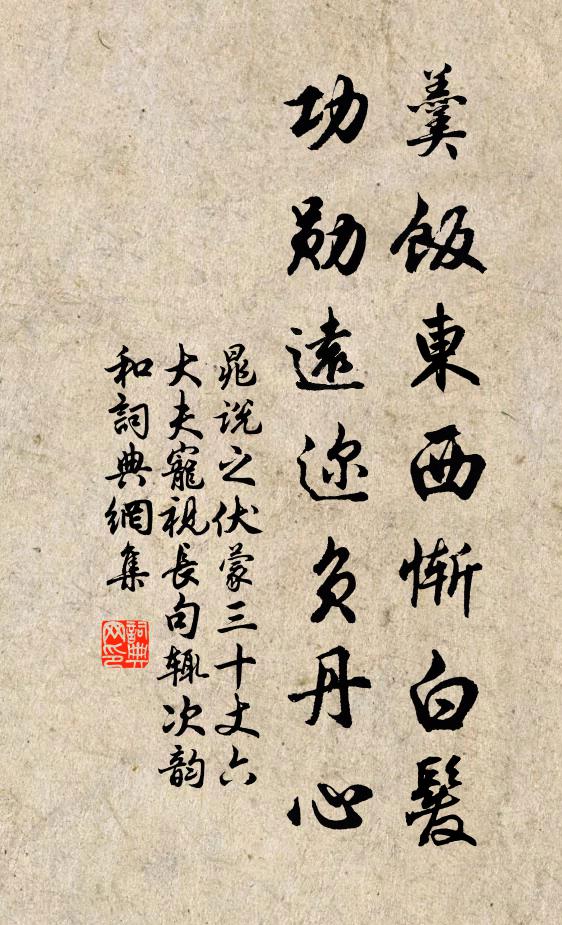 羹飯東西慚白髮
功勛遠迩負丹心
晁說之伏蒙三十丈六
大夫寵視長句輒次韵
和詞典網集
詞典网印